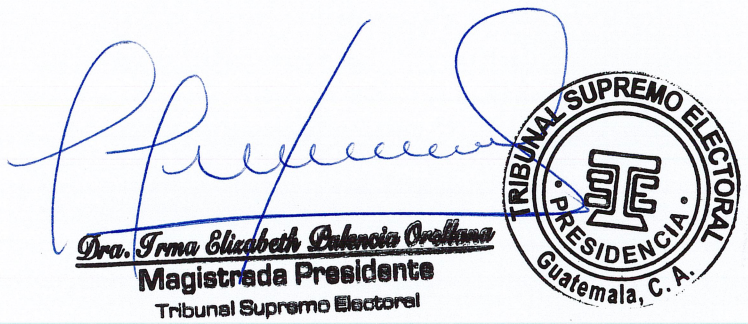 Dra. Irma Elizabeth Palencia Orellana
Magistrada Presidente
Tribunal Supremo Electoral
TRIBUNAL SUPREMO ELECTORAL
PRESIDENCIA
Guatemala, C. A.